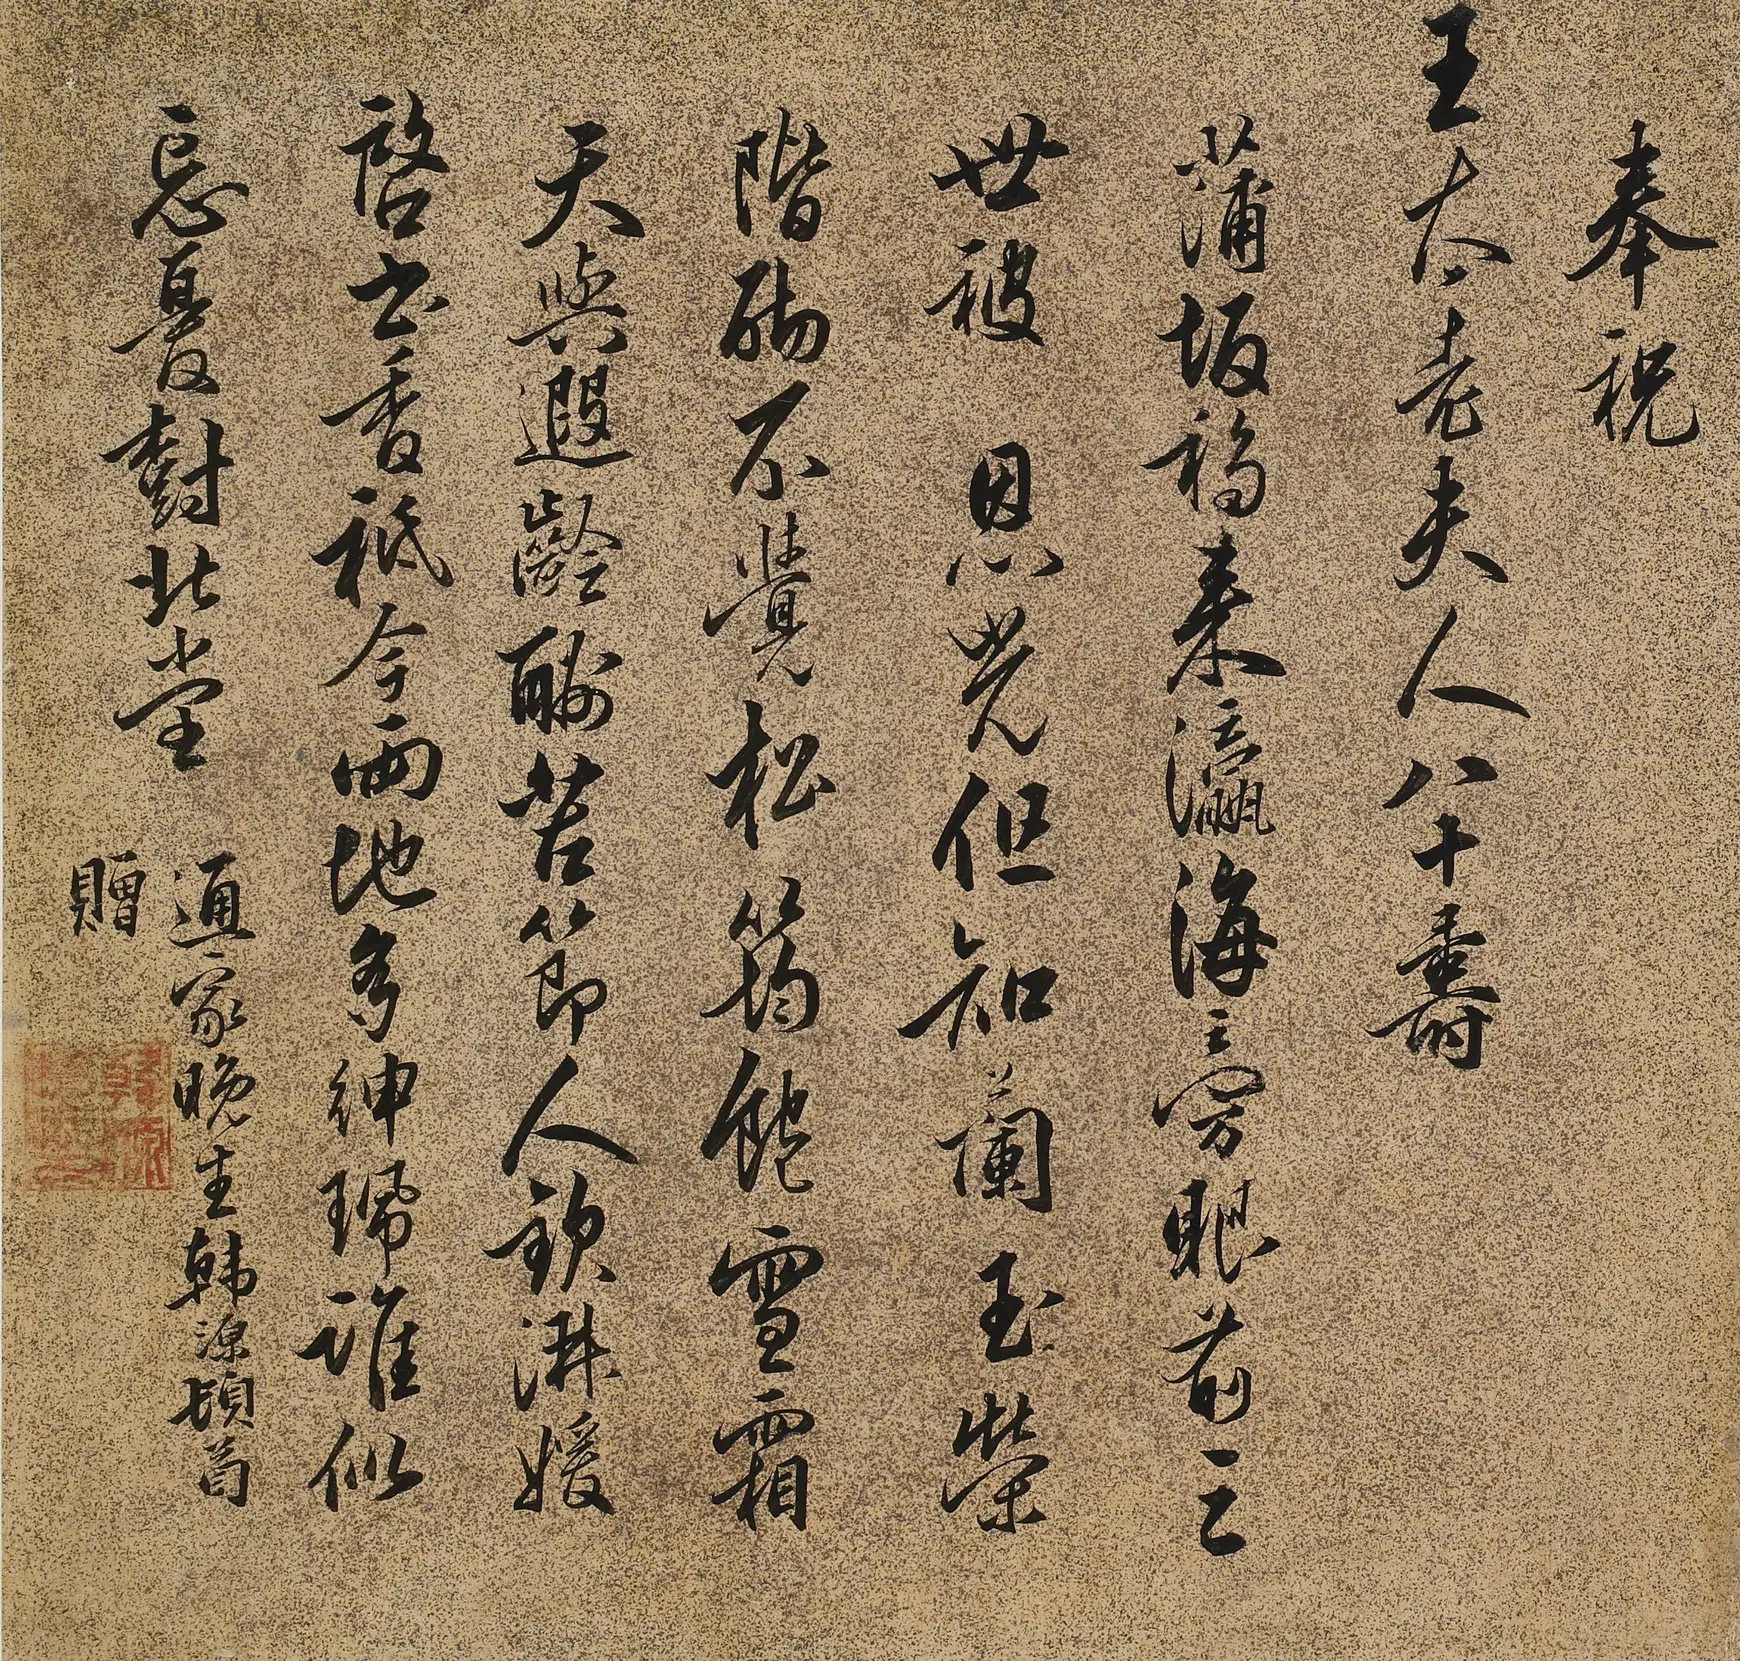 奉祝
王太老夫人八十壽
蒲坂福來瀛海旁眼前三
世被 恩光但知蘭玉榮
階砌不覺松筠飽雪霜
天與遐齡酬苦節人欽淑媛
啓書香祗今兩地多紳珮誰似
忘憂對北堂
通家晚生韩源頓首
贈